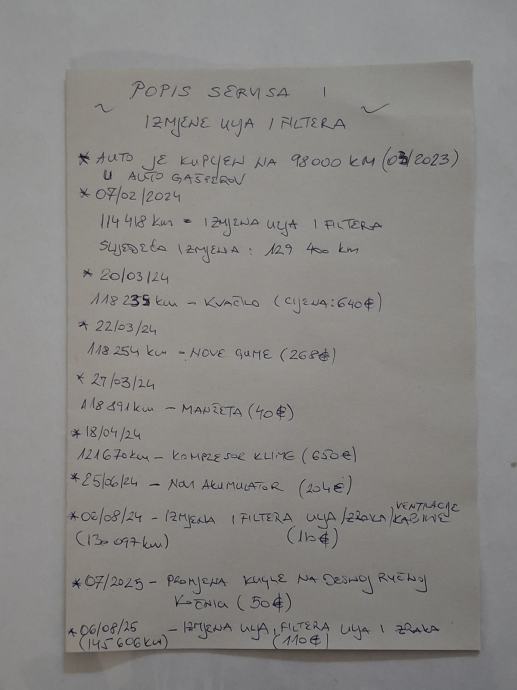 POPIS SERVISA I
IZMJENE ULJA I FILTERA
* AUTO JE KUPLJEN NA 98000 KM (03/2023)
U AUTO GAŠPEROV
* 07/02/2024
114 418 km = IZMJENA ULJA I FILTERA
SLJEDEĆA IZMJENA: 129 400 km
* 20/03/24
118 235 km - KVAČILO (CIJENA: 640€)
* 22/03/24
118 254 km - NOVE GUME (268€)
* 27/03/24
118 891 km - MANŽETA (40€)
* 18/04/24
121 670 km - KOMPRESOR KLIME (650€)
* 25/06/24 - NOVI AKUMULATOR (204€)
* 02/08/24 - IZMJENA I FILTERA ULJA/ZRAKA/VENTILACIJE KABINE
(130 097 km) (110€)
* 07/2025 - PROMJENA KUGLE NA DESNOJ RUČNOJ
KOČNICI (50€)
* 06/08/25 - IZMJENA ULJA, FILTERA ULJA I ZRAKA
(145 606 km) (110€)